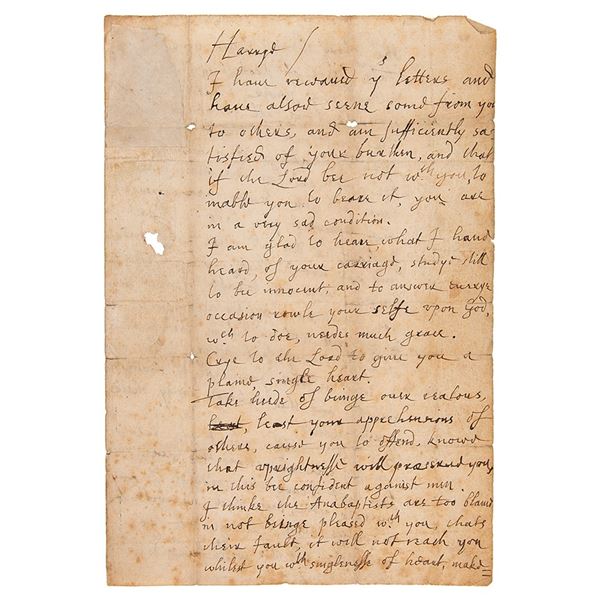 Harrye
I have receaued yr letters and
have alsoe seene some from you
to others, and am sufficiently sa-
tisfied of your burthen, and that
if the Lord bee not wth you, to
inable you to beare it, you are
in a very sad condition.
I am glad to heare, what I have
heard, of your carriage, studye still
to bee innocent, and to answer euerye
occasion rowle your selfe upon God,
wch to doe, needes much grace.
Crye to the Lord to give you a
plaine single heart.
Take heede of beinge ouer zealous,
least your apprehensions of
others, cause you to offend, knowe
that uprightnesse will preserve you,
in this bee confident against men
I thinke the Anabaptists are too blame
in not beinge pleased wth you, thats
their fault, it will not reach you
whilest you wth singlenesse of heart, make=